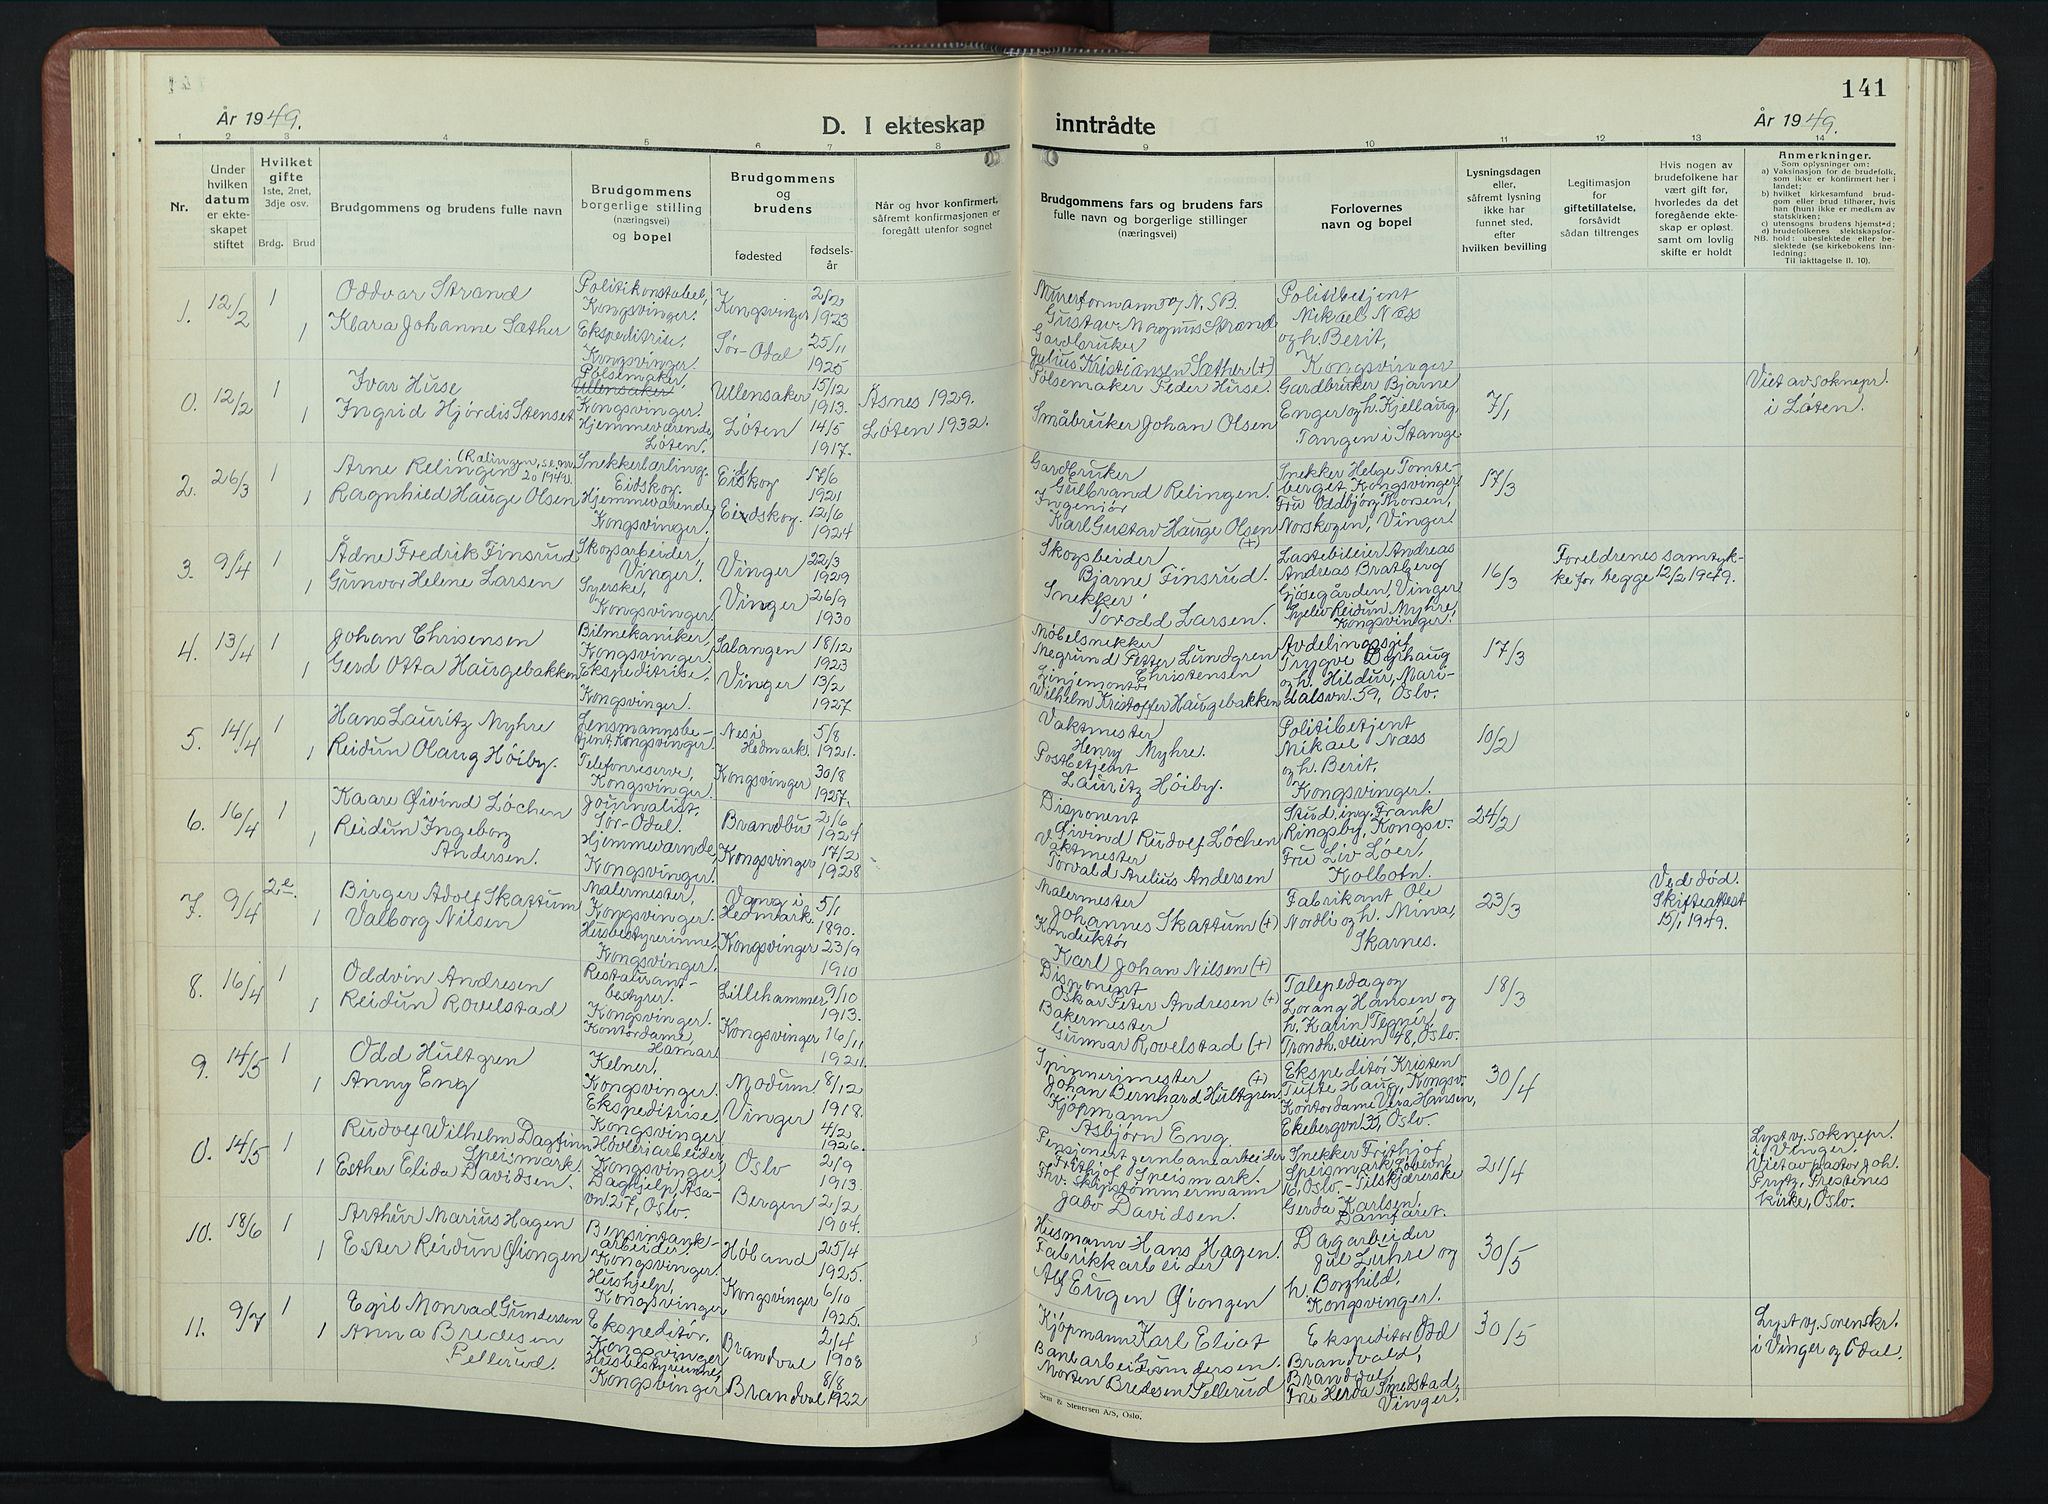 141
År 1949.
D. I ekteskap inntrådte
År 1949.
1 2 3 4 5 6 7 8 9 10 11 12 13 14
Nr.
Under hvilken datum er ekteskapet stiftet
Hvilket gifte
1ste, 2net, 3dje osv.
Brdg. Brud
Brudgommens og brudens fulle navn
Brudgommens borgerlige stilling (næringsvei) og bopel
Brudgommens og brudens
fødested
fødselsår
Når og hvor konfirmert, såfremt konfirmasjonen er foregått utenfor sognet
Brudgommens fars og brudens fars fulle navn og borgerlige stillinger (næringsvei)
Forlovernes navn og bopel
Lysningsdagen eller, såfremt lysning ikke har funnet sted, efter hvilken bevilling
Legitimasjon for giftetillatelse, forsåvidt sådan tiltrenges
Hvis nogen av brudefolkene har vært gift før, hvorledes da det foregående ekteskap er opløst, samt om lovlig skifte er holdt
Anmerkninger.
Som oplysninger om:
a) Vaksinasjon for de brudefolk, som ikke er konfirmert her i landet;
b) hvilket kirkesamfund brudgom eller brud tilhører, hvis han (hun) ikke er medlem av statskirken;
c) utensogns brudens hjemsted;
d) brudefolkenes slektskapsforhold: ubeslektede eller beslektede (se kirkebokens innledning:
NB. Til iakttagelse II. 10).
1. 12/2 1 Oddvar Strand
Politikonstabel, Kongsvinger.
Kongsvinger 2/2 1923
Murerformann v/ N.S.B. Gustav Magnus Strand
Politibetjent Mikael Næss og h. Berit, Kongsvinger
1 Klara Johanne Sæther
Ekspeditrise, Kongsvinger.
Sør-Odal 25/11 1925
Gårdbruker Julius Kristiansen Sæther (+)
0. 12/2 1 Ivar Hirse
Pølsemaker, Ullensaker Kongsvinger.
Ullensaker 15/12 1913.
Åsnes 1929.
Pølsemaker Peder Hirse.
Gardbruker Bjarne Enger og h. Kjellaug, Tangen i Stange
7/1
Viet av soknepr. i Løten.
1 Ingrid Hjørdis Stenset
Hjemmeværende, Løten.
Løten 14/5 1917.
Løten 1932.
Småbruker Johan Olsen
2. 26/3 1 Arne Relingen
Snekkerlærling, Eidskog.
Eidskog 17/6 1921
Gardbruker Gulbrand Relingen.
Snekker Helge Tomteberget, Kongsvinger
Fru Oddbjørg Thorsen, Norskogen, Vinger.
17/3
1 Ragnhild Hauge Olsen
Hjemmeværende, Kongsvinger.
Eidskog. 12/6 1924
Ingeniør Karl Gustav Hauge Olsen (+)
3. 9/4 1 Ådne Fredrik Finsrud
Skogarbeider, Vinger.
Vinger 22/3 1929
Skogsbeider Bjarne Finsrud.
Lastebileier Andreas Andreas Bratberg Gjøsegården, Vinger
Reidun Myhre, Kongsvinger.
16/3
Foreldrenes samtykke for begge 12/2 1949.
1 Gunvor Helene Larsen
Syerske, Kongsvinger.
Vinger 26/9 1930
Snekker Torodd Larsen.
4. 13/4 1 Johan Chrisensen
Bilmekaniker, Kongsvinger.
Salangen 18/12 1923
Møbelsnekker Negrund Petter Lundgren Christensen
Avdelingssjef Trygve Dyrhaug og h. Hildur, Maridalsvn. 59, Oslo.
17/3
1 Gerd Otta Haugebakken
Ekspeditrise, Kongsvinger.
Vinger 13/2 1927
Linjemontør Wilhelm Kristoffer Haugebakken
5. 14/4 1 Hans Lauritz Myhre
Lensmannsbetjent, Kongsvinger.
Nes i Hedmark. 5/8 1921.
Vaktmester Henry Myhre.
Politibetjent Mikael Næss og h. Berit, Kongsvinger.
10/2
1 Reidun Olaug Høiby.
Telefonreserve, Kongsvinger.
Kongsvinger 30/8 1927.
Postbetjent Lauritz Høiby.
6. 16/4 1 Kaare Øivind Løchen
Journalist, Sør-Odal.
Brandbu 2/6 1924
Disponent Øivind Rudolf Løchen
Stud. ing. Frank Ringsby, Kongsv.
Fru Liv Løer, Kolbotn.
24/2
1 Reidun Ingeborg Andersen.
Hjemmevarnde, Kongsvinger.
Kongsvinger 17/2 1928
Vaktmester Torvald Arelius Andersen
7. 9/4 2e Birger Adolf Skattum
Malermester, Kongsvinger.
Vang i Hedmark. 5/1 1890.
Malermester Johannes Skattum (+)
Fabrikant Ole Nordli og h. Mina, Skarnes.
23/3
Ved død. Skifteattest 15/1 1949.
1 Valborg Nilsen
Husbestyrerinne, Kongsvinger.
Kongsvinger 23/9 1910
Konduktør Karl Johan Nilsen (+)
8. 16/4 1 Oddvin Andresen
Restaurantbestyrer, Kongsvinger.
Lillehammer 9/10 1913.
Disponent Oskar Peter Andresen (+)
Talepedagog Lorang Hansen og h. Karin Tegnér, Trondh.veien 48, Oslo.
18/3
1 Reidun Rovelstad
Kontordame, Hamar
Kongsvinger 16/11 1921.
Bakermester Gunnar Rovelstad (+)
9. 14/5 1 Odd Hultgren
Kelner, Kongsvinger.
Modum 8/12 1918.
Spinnerimester (+) Johan Bernhard Hultgren
Ekspeditør Kristen Tufte Haug, Kongsv.
Kontordame Vera Hansen, Ekebergvn. 35, Oslo.
30/4
1 Anny Eng
Ekspeditrise, Kongsvinger
Vinger 4/2 1926.
Kjøpmann Asbjørn Eng.
0. 14/5 1 Rudolf Wilhelm Dagfinn Speismark
Høvleriarbeider, Kongsvinger.
Oslo 2/9 1913.
Pensjonert jernbanearbeider Frithjof Speismark.
Snekker Frithjof Speismark, 16, Oslo. - Tilskjærerske Gerda Karlsen, Damfaret.
21/4
Lyst v. soknepr. i Vinger. Viet av pastor Joh. Frytz, Frestenes kirke, Oslo.
1 Esther Elida Davidsen.
Daghjelp, Åsavn. 27, Oslo.
Bergen 2/2 1904.
Thv. skipstømmermann Jabo Davidsen.
10. 18/6 1 Arthur Marius Hagen
Bensintankarbeider, Kongsvinger.
Høland 25/4 1925.
Husmann Hans Hagen.
Dagarbeider Jul Lühre og h. Borghild, Kongsvinger.
30/5
1 Ester Reidun Øiongen
Hushjelp, Kongsvinger
Kongsvinger 6/10 1925.
Fabrikkarbeider Alf Eugen Øiongen
11. 9/7 1 Egil Monrad Gundersen
Ekspeditør, Kongsvinger
Brandval 2/4 1908
Kjøpmann Karl Eliot Gundersen.
Ekspeditør Odd Brandvold, Brandval,
Fru Herda Smedstad, Vinger.
30/5
Lyst v. sorenskr. i Vinger og Odal.
1 Anna Bredesen Pellerud.
Husbestyrerinne, Kongsvinger
Brandval 8/8 1922
Banearbeider Morten Bredesen Pellerud
Sem & Stenersen A/S, Oslo.